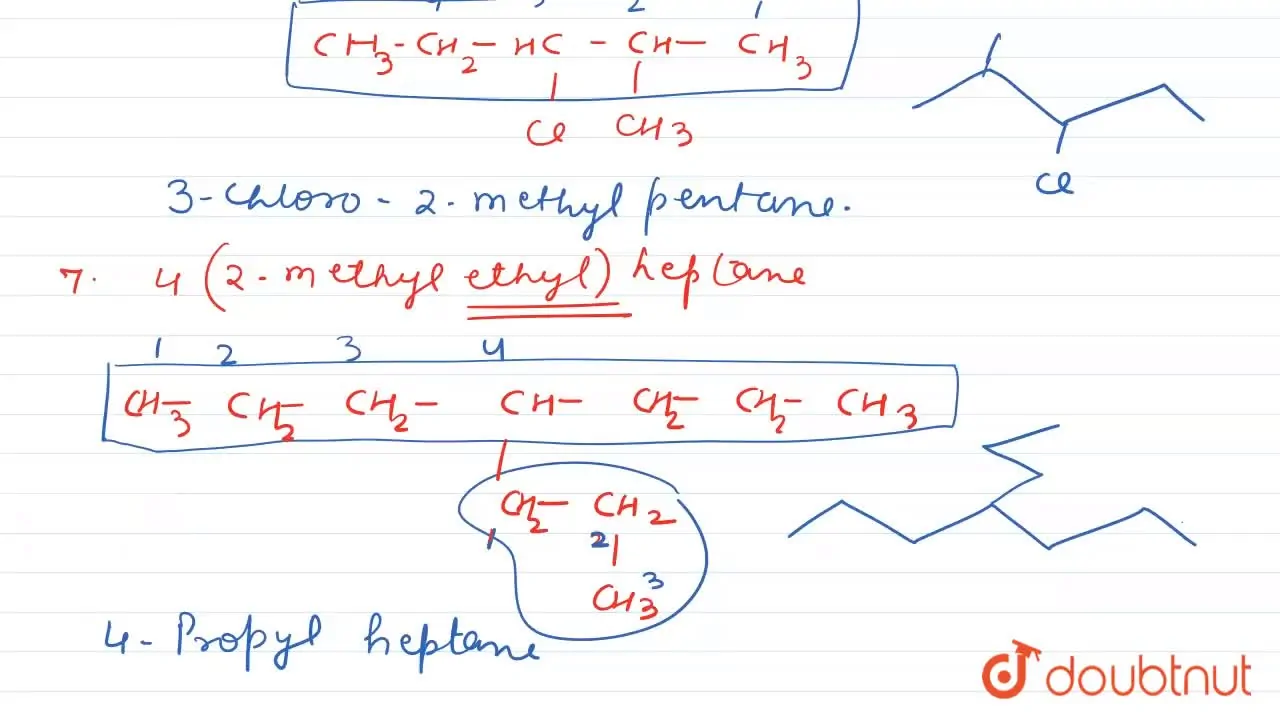 4 3 2 1
CH3 - CH2 - HC - CH - CH3
Cl CH3
Cl
3-Chloro - 2-methyl pentane.
7. 4 (2-methyl ethyl) heptane
1 2 3 4
CH3 - CH2 - CH2 - CH - CH2 - CH2 - CH3
CH2 - CH2
1 2
CH3 3
4-Propyl heptane
doubtnut